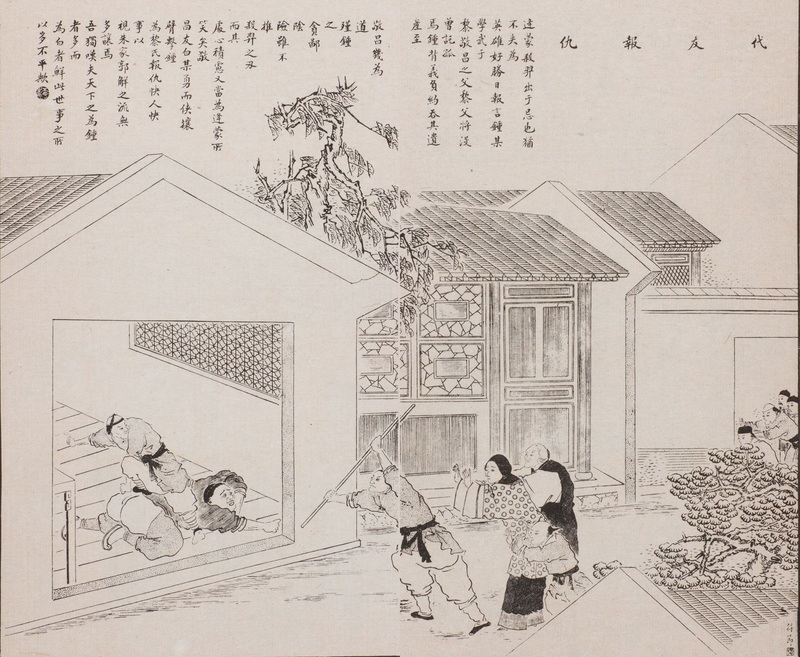 代友報仇
逢蒙殺羿出于忌也猶
不失為
英雄好勝日報言鍾某
學武于
黎敬昌之父黎父將沒
曾託孤
焉鍾背義負約吞其遺
產至
敬昌幾為
道
殣鍾
之
貪鄙
陰
險雖不
推
殺羿之刃
而其
處心積慮又當為逢蒙所
笑矣敬
昌友白某勇而俠攘
臂擊鍾
為黎氏報仇快人快
事以
視朱家郭解之流無
多讓焉
吾獨嘆夫天下之為鍾
者多而
為白者鮮此世事之所
以多不平歟